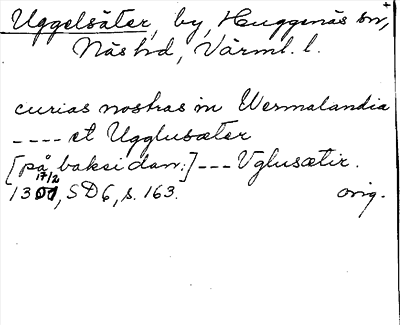 Uggelsäter, by, Huggenäs sn,
Näs hd, Värml. l.
curias nostras in Wermalandia
---- et Ugglusæter
[på baksidan:] --- Vglusætir.
17/2
13, SD6, s. 163. orig.